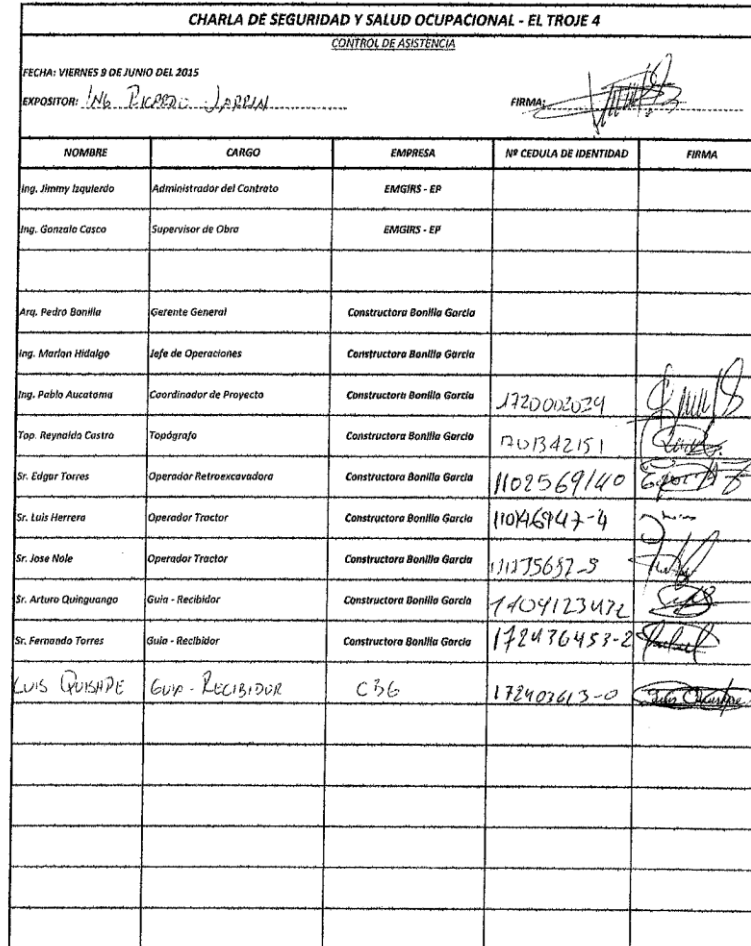 CHARLA DE SEGURIDAD Y SALUD OCUPACIONAL - EL TROJE 4
CONTROL DE ASISTENCIA
FECHA: VIERNES 9 DE JUNIO DEL 2015
EXPOSITOR: ING RICARDO JARRIN FIRMA:
NOMBRE CARGO EMPRESA Nº CEDULA DE IDENTIDAD FIRMA
Ing. Jimmy Izquierdo Administrador del Contrato EMGIRS - EP
Ing. Gonzalo Casco Supervisor de Obra EMGIRS - EP
Arq. Pedro Bonilla Gerente General Constructora Bonilla Garcia
Ing. Marlon Hidalgo Jefe de Operaciones Constructora Bonilla Garcia
Ing. Pablo Aucatoma Coordinador de Proyecto Constructora Bonilla Garcia 1720002029
Top. Reynaldo Castro Topógrafo Constructora Bonilla Garcia 1701342151
Sr. Edgar Torres Operador Retroexcavadora Constructora Bonilla Garcia 1102569140
Sr. Luis Herrera Operador Tractor Constructora Bonilla Garcia
Sr. Jose Nole Operador Tractor Constructora Bonilla Garcia
Sr. Arturo Quinguango Guia - Recibidor Constructora Bonilla Garcia
Sr. Fernando Torres Guia - Recibidor Constructora Bonilla Garcia 172436453-2
LUIS QUISHPE GUIA - RECIBIDOR CBG 172403613-0